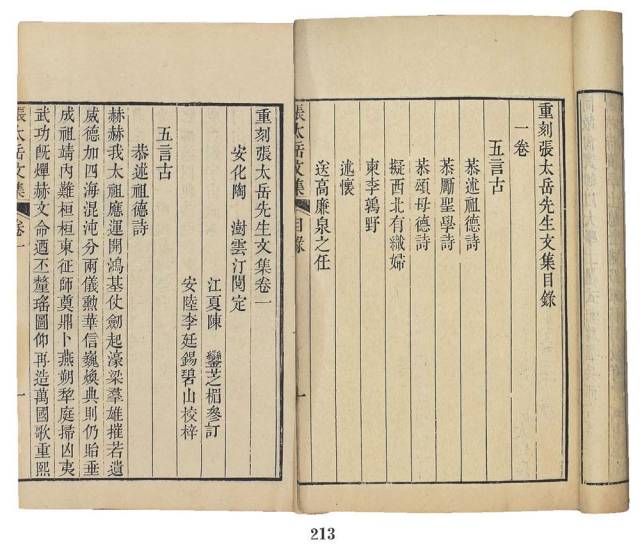 重刻張太岳先生文集目錄
一卷
五言古
恭述祖德詩
恭勵聖學詩
恭頌母德詩
擬西北有織婦
柬李鶴野
述懷
送高廉泉之任
張太岳文集
目錄
一
重刻張太岳先生文集卷一
安化陶澍雲汀閱定
江夏陳鑾芝楣參訂
安陸李廷錫碧山校梓
五言古
恭述祖德詩
赫赫我太祖應運開鴻基仗劍起濠梁羣雄摧若遺
威德加四海混沌分兩儀勳華信巍煥典則仍貽垂
成祖靖內難桓桓東征師奠鼎卜燕朔犂庭掃凶夷
武功旣燀赫文命迺丕釐瑤圖仰再造萬國歌重熙
張太岳文集
卷一
一
213